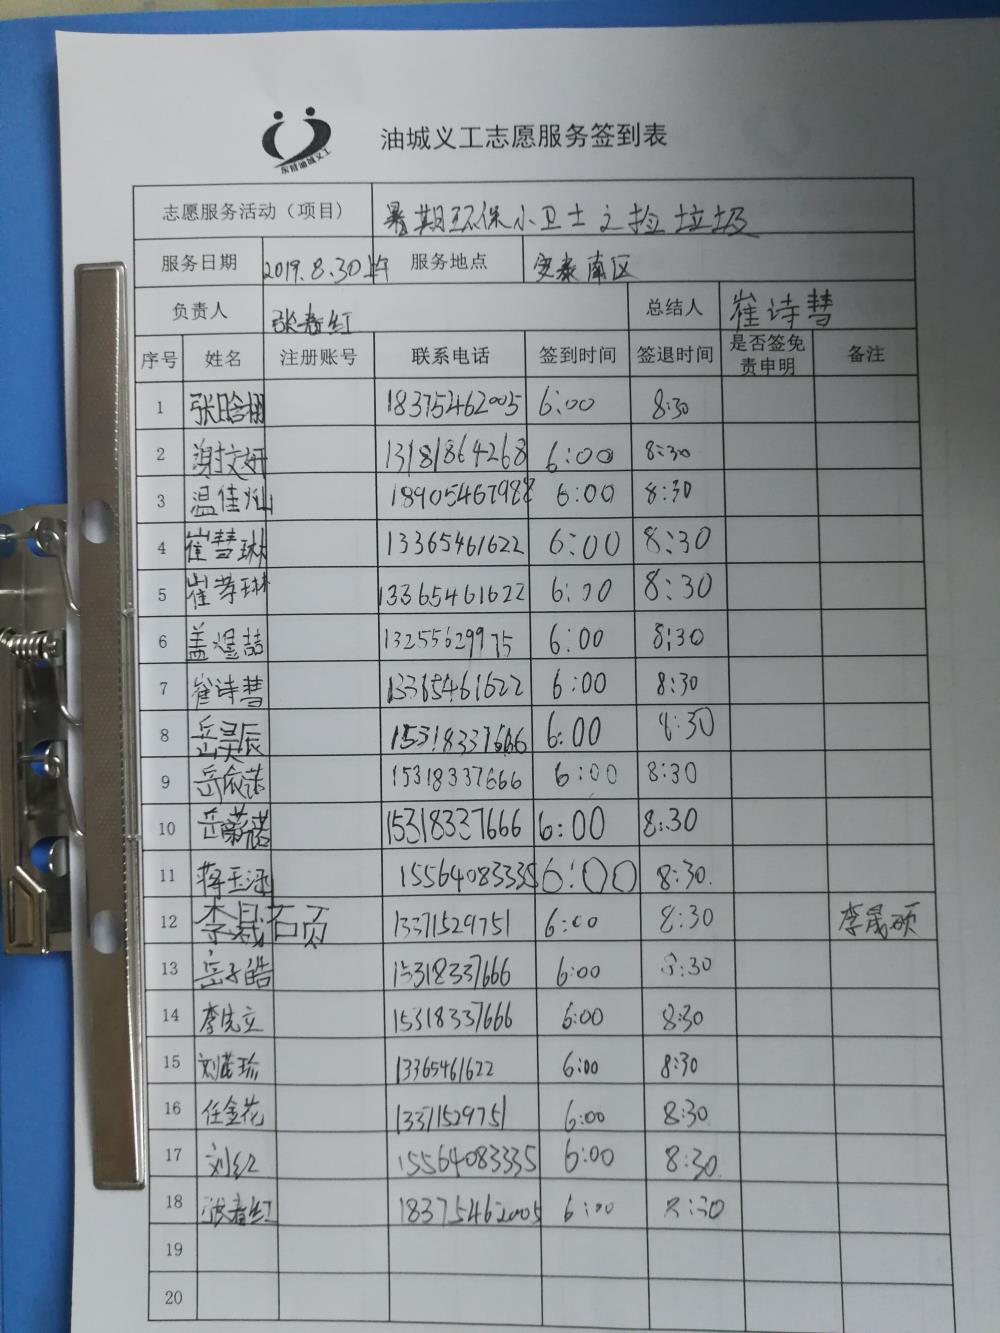 东营油城义工
油城义工志愿服务签到表
志愿服务活动（项目） 暑期环保小卫士之捡垃圾
服务日期 2019.8.30上午 服务地点 安泰南区
负责人 张春红 总结人 崔诗彗
序号 姓名 注册账号 联系电话 签到时间 签退时间 是否签免责申明 备注
1 张晗栩 18375462005 6:00 8:30
2 谢文妍 13181864268 6:00 8:30
3 温佳灿 18905467988 6:00 8:30
4 崔彗琳 13365461622 6:00 8:30
5 崔梦琳 13365461622 6:00 8:30
6 盖煜喆 13255629975 6:00 8:30
7 崔诗彗 13365461622 6:00 8:30
8 岳昊辰 15318337666 6:00 8:30
9 岳依诺 15318337666 6:00 8:30
10 岳 诺 15318337666 6:00 8:30
11 蒋玉涵 15564083335 6:00 8:30
12 李晟硕 13371529751 6:00 8:30 李晟硕
13 岳子皓 15318337666 6:00 8:30
14 李先立 15318337666 6:00 8:30
15 刘 珍 13365461622 6:00 8:30
16 任金花 13371529751 6:00 8:30
17 刘红 15564083335 6:00 8:30
18 张春红 18375462005 6:00 8:30
19
20